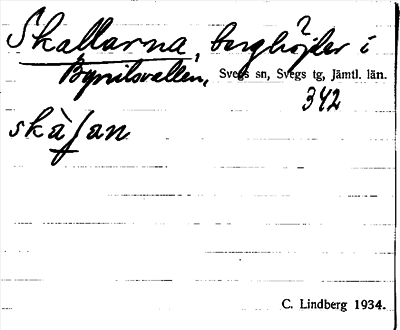 Skallarna, berghöjder i
Bynilsvallen, Svegs sn, Svegs tg, Jämtl. län.
342
C. Lindberg 1934.